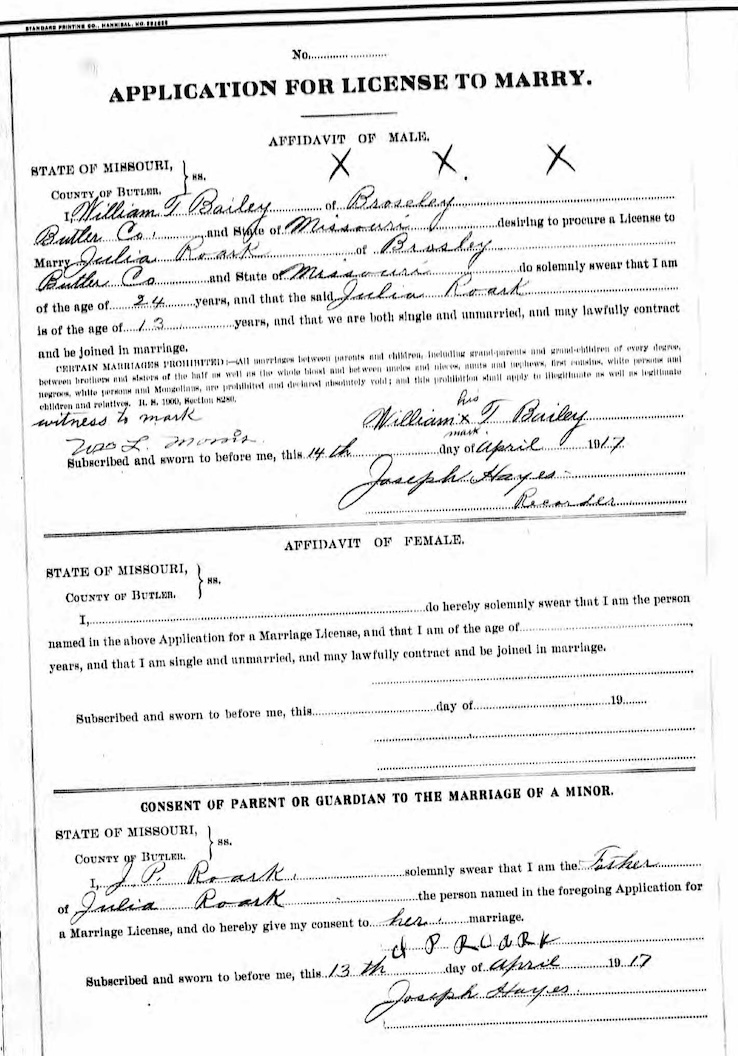 STANDARD PRINTING CO., HANNIBAL, MO.
No.
APPLICATION FOR LICENSE TO MARRY.
AFFIDAVIT OF MALE.
X X. X
STATE OF MISSOURI,
COUNTY OF BUTLER. } ss.
I, William T Bailey of Broseley
Butler Co. and State of Missouri desiring to procure a License to
Marry Julia Roark of Brosley
Butler Co and State of Missouri do solemnly swear that I am
of the age of 24 years, and that the said Julia Roark
is of the age of 13 years, and that we are both single and unmarried, and may lawfully contract
and be joined in marriage.
CERTAIN MARRIAGES PROHIBITED:—All marriages between parents and children, including grand-parents and grand-children of every degree,
between brothers and sisters of the half as well as the whole blood and between uncles and nieces, aunts and nephews, first cousins, white persons and
negroes, white persons and Mongolians, are prohibited and declared absolutely void; and this prohibition shall apply to illegitimate as well as legitimate
children and relatives. R. S. 1909, Section 8280.
witness to mark
his
William x T Bailey
mark.
Wm L. Morris.
Subscribed and sworn to before me, this 14th day of April 1917
Joseph Hayes
Recorder
AFFIDAVIT OF FEMALE.
STATE OF MISSOURI,
COUNTY OF BUTLER. } ss.
I, do hereby solemnly swear that I am the person
named in the above Application for a Marriage License, and that I am of the age of ,
years, and that I am single and unmarried, and may lawfully contract and be joined in marriage.
Subscribed and sworn to before me, this day of 19
CONSENT OF PARENT OR GUARDIAN TO THE MARRIAGE OF A MINOR.
STATE OF MISSOURI,
COUNTY OF BUTLER. } ss.
I, J. P. Roark, solemnly swear that I am the Father
of Julia Roark the person named in the foregoing Application for
a Marriage License, and do hereby give my consent to her marriage.
J P ROARK
Subscribed and sworn to before me, this 13th day of April 1917
Joseph Hayes.